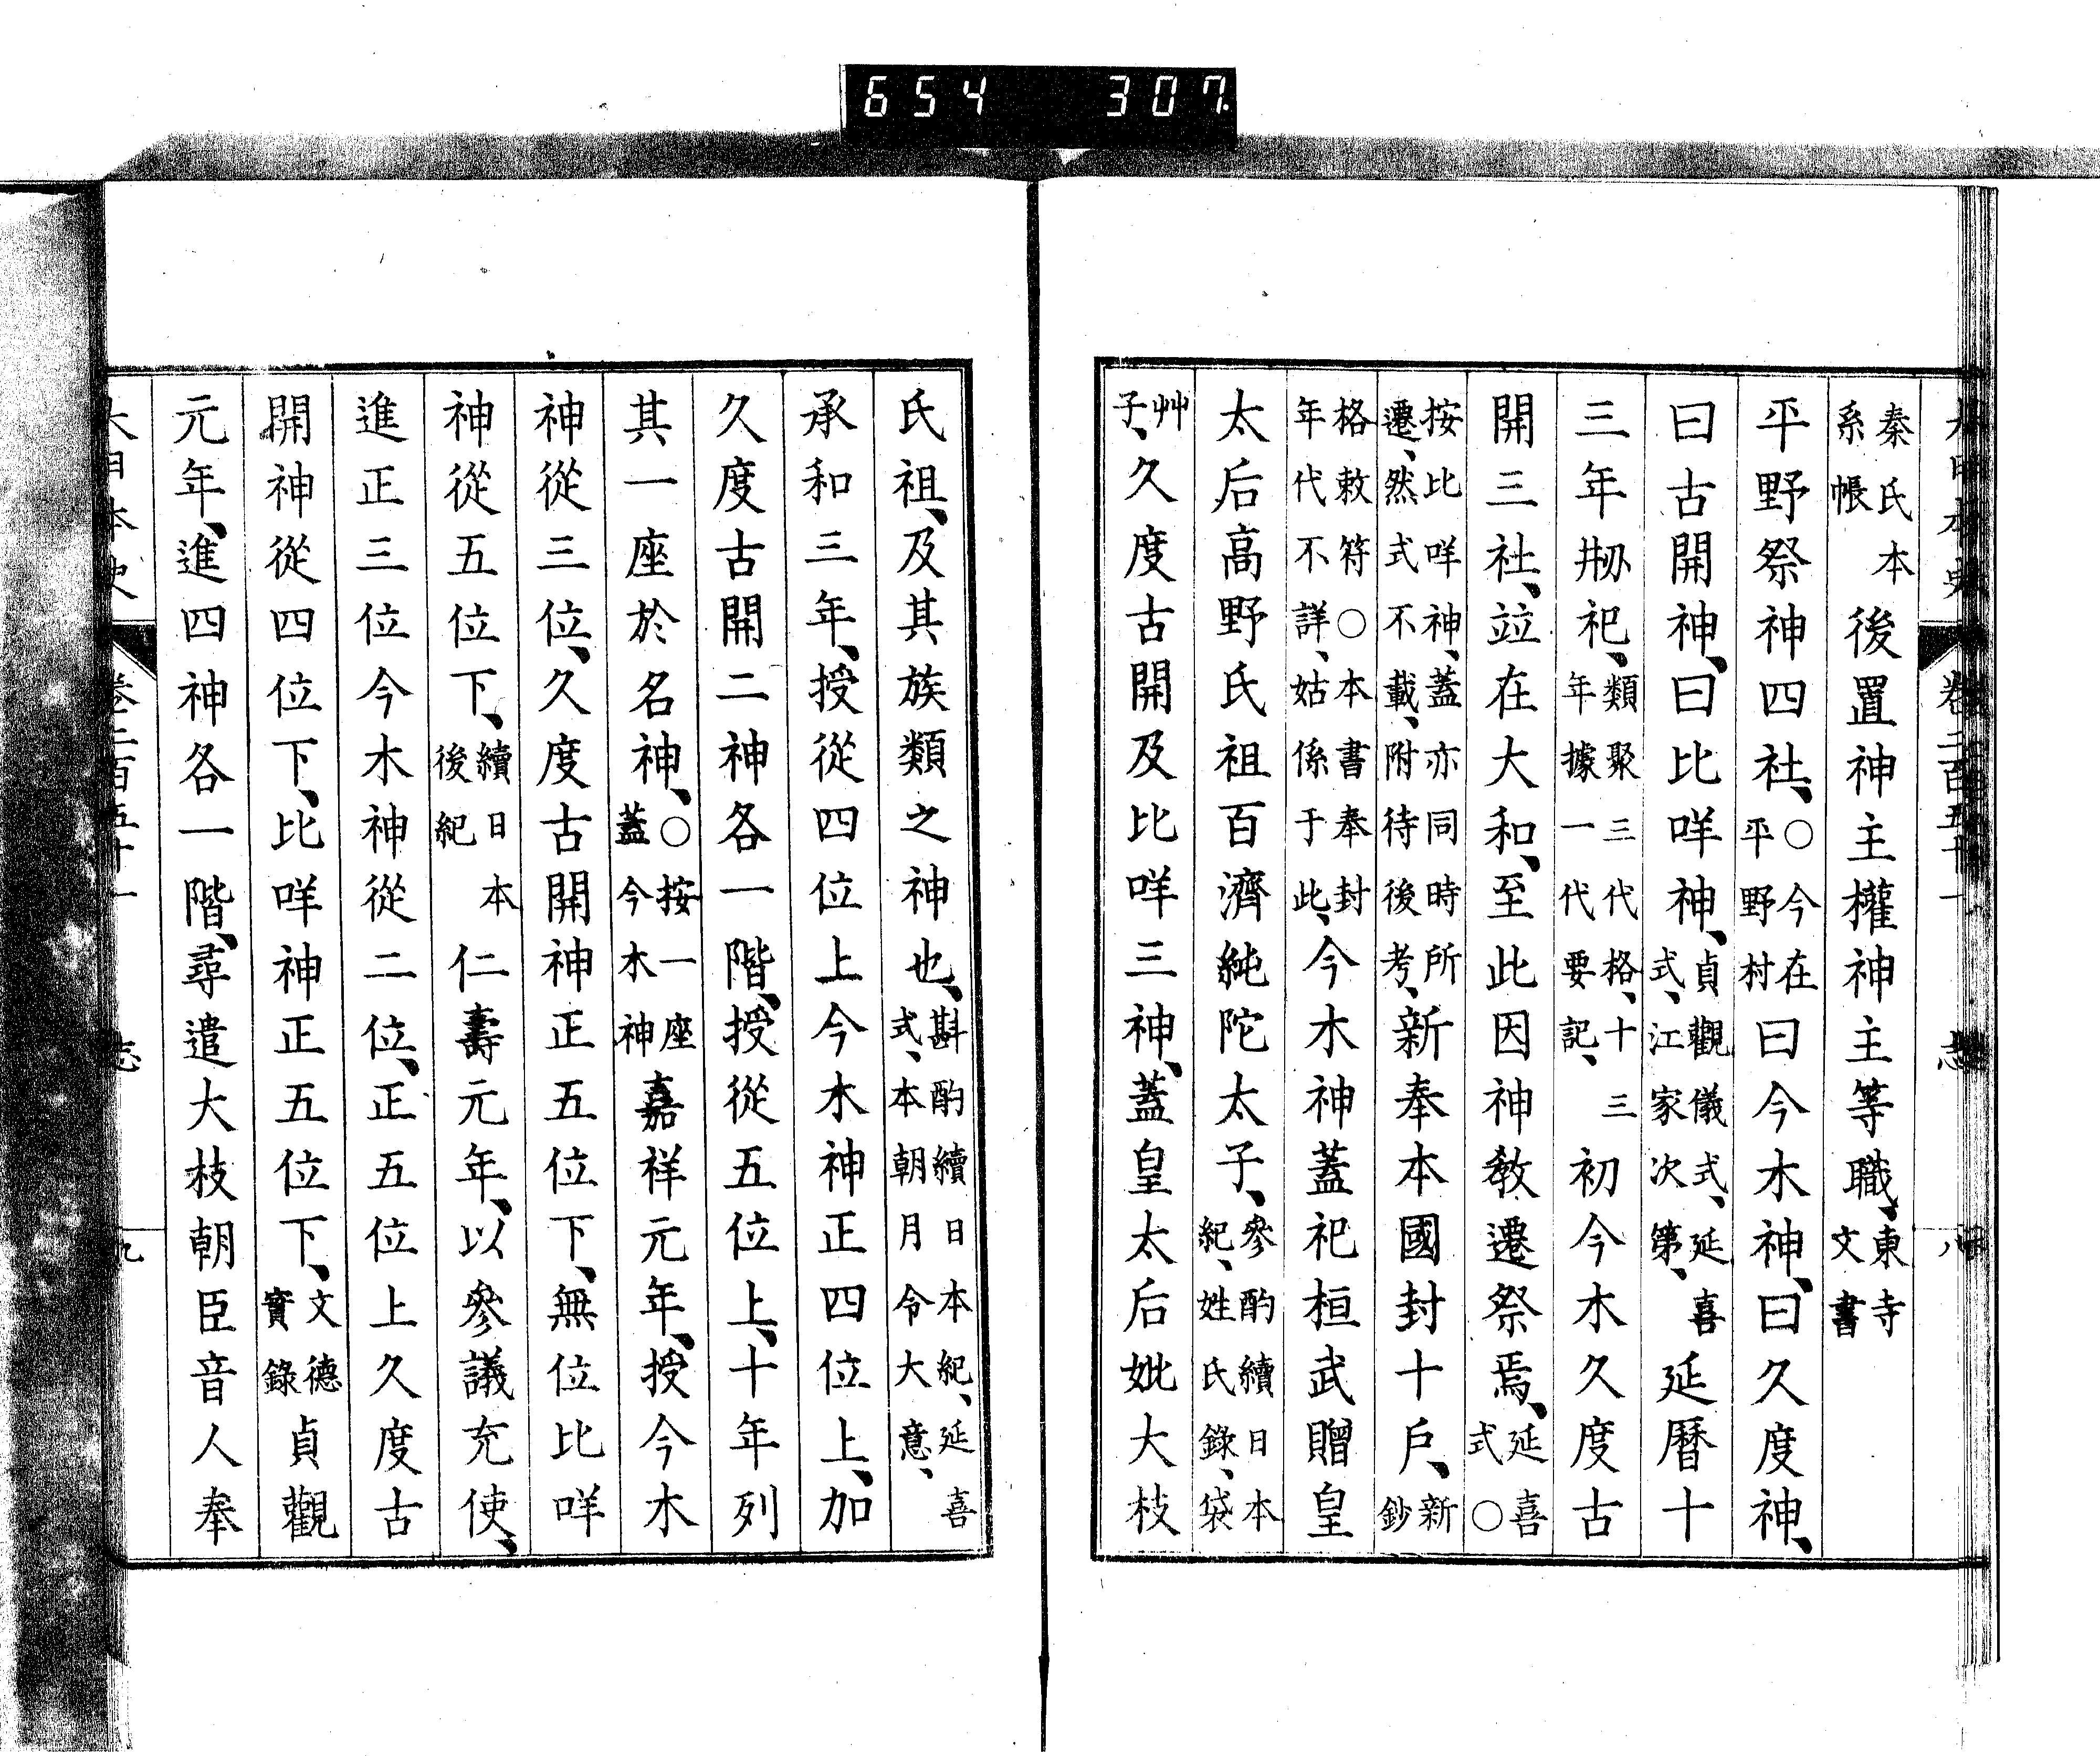 654 307
秦氏本系帳後置神主權神主等職、東寺文書
平野祭神四社、○今在平野村曰今木神、曰久度神、
曰古開神、曰比咩神、貞觀儀式、延喜式、江家次第、延曆十
三年刱祀、類聚三代格、十三年據一代要記、初今木久度古
開三社、竝在大和、至此因神敎遷祭焉、延喜式○
按比咩神、蓋亦同時所遷、然式不載、附待後考、新奉本國封十戶、新鈔
格敕符○本書奉封年代不詳、姑係于此、今木神蓋祀桓武贈皇
太后高野氏祖百濟純陀太子、參酌續日本紀、姓氏錄、袋
艸子、久度古開及比咩三神、蓋皇太后妣大枝
氏祖、及其族類之神也、斟酌續日本紀、延喜式、本朝月令大意、
承和三年、授從四位上今木神正四位上、加
久度古開二神各一階、授從五位上、十年列
其一座於名神、○按一座蓋今木神嘉祥元年、授今木
神從三位、久度古開神正五位下、無位比咩
神從五位下、續日本後紀仁壽元年、以參議充使、
進正三位今木神從二位、正五位上久度古
開神從四位下、比咩神正五位下、文德實錄貞觀
元年、進四神各一階、尋遣大枝朝臣音人奉
大日本史 卷二百五十一 志 九